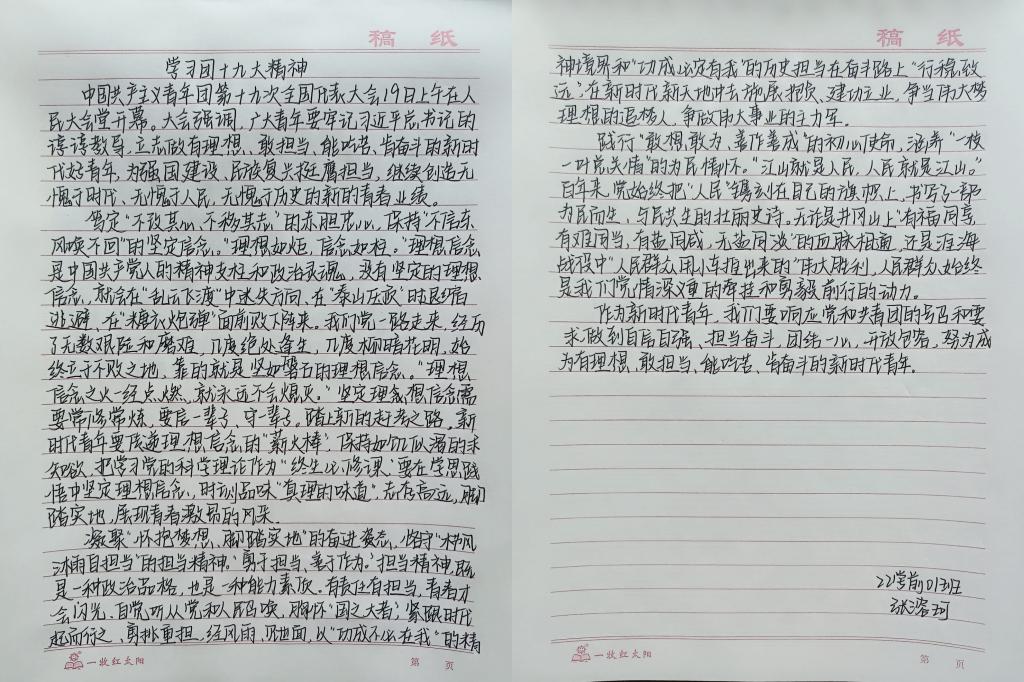 稿 纸
学习团十九大精神
中国共产主义青年团第十九次全国代表大会19日上午在人
民大会堂开幕。大会强调，广大青年要牢记习近平总书记的
谆谆教导，立志做有理想、敢担当、能吃苦、肯奋斗的新时
代好青年，为强国建设、民族复兴挺膺担当，继续创造无
愧于时代、无愧于人民，无愧于历史的新的青春业绩。
笃定“不改其心，不移其志”的赤胆忠心，保持“不信东
风唤不回”的坚定信念。“理想如炬，信念如柱。”理想信念
是中国共产党人的精神支柱和政治灵魂，没有坚定的理想
信念，就会在“乱云飞渡”中迷失方向、在“泰山压顶”时畏缩
逃避、在“糖衣炮弹”面前败下阵来。我们党一路走来，经历
了无数艰险和磨难，几度绝处逢生，几度柳暗花明，始
终立于不败之地，靠的就是坚如磐石的理想信念。“理想
信念之火一经点燃，就永远不会熄灭。”坚定理想信念需
要常修常炼，要信一辈子、守一辈子。踏上新的赶考之路，新
时代青年要传递理想信念的“薪火棒”，保持如饥似渴的求
知欲，把学习党的科学理论作为“终生必修课”，要在学思践
悟中坚定理想信念，时刻品味“真理的味道”，志存高远，脚
踏实地，展现青春激昂的风采。
凝聚“怀抱梦想、脚踏实地”的奋进姿态，恪守“栉风
沐雨自担当”的担当精神。“勇于担当、善于作为。”担当精神，既
是一种政治品格，也是一种能力素质。有责任有担当，青春才
会闪光。自觉听从党和人民召唤，胸怀“国之大者”，紧跟时代
起而行之、勇挑重担，经风雨、见世面，以“功成不必在我”的精
一枚红太阳
第 页
稿 纸
神境界和“功成必定有我”的历史担当在奋斗路上“行稳致
远”，在新时代新天地中去施展抱负、建功立业，争当伟大梦
理想的追梦人，争做伟大事业的主力军。
践行“敢想敢为、善作善成”的初心使命，涵养“一枝
一叶总关情”的为民情怀。“江山就是人民，人民就是江山。”
百年来，党始终把“人民”镌刻在自己的旗帜上，书写了一部
为民而生、与民共生的壮丽史诗。无论是井冈山上“有福同享，
有难同当，有盐同咸，无盐同淡”的血脉相通，还是淮海
战役中“人民群众用小车推出来的”伟大胜利，人民群众始终
是我们党情深义重的牵挂和勇毅前行的动力。
作为新时代青年，我们要响应党和共青团的号召和要
求，做到自信自强、担当奋斗，团结一心，开放包容，努力成
为有理想、敢担当、能吃苦、肯奋斗的新时代青年。
22学前01班
张溶珂
一枚红太阳
第 页